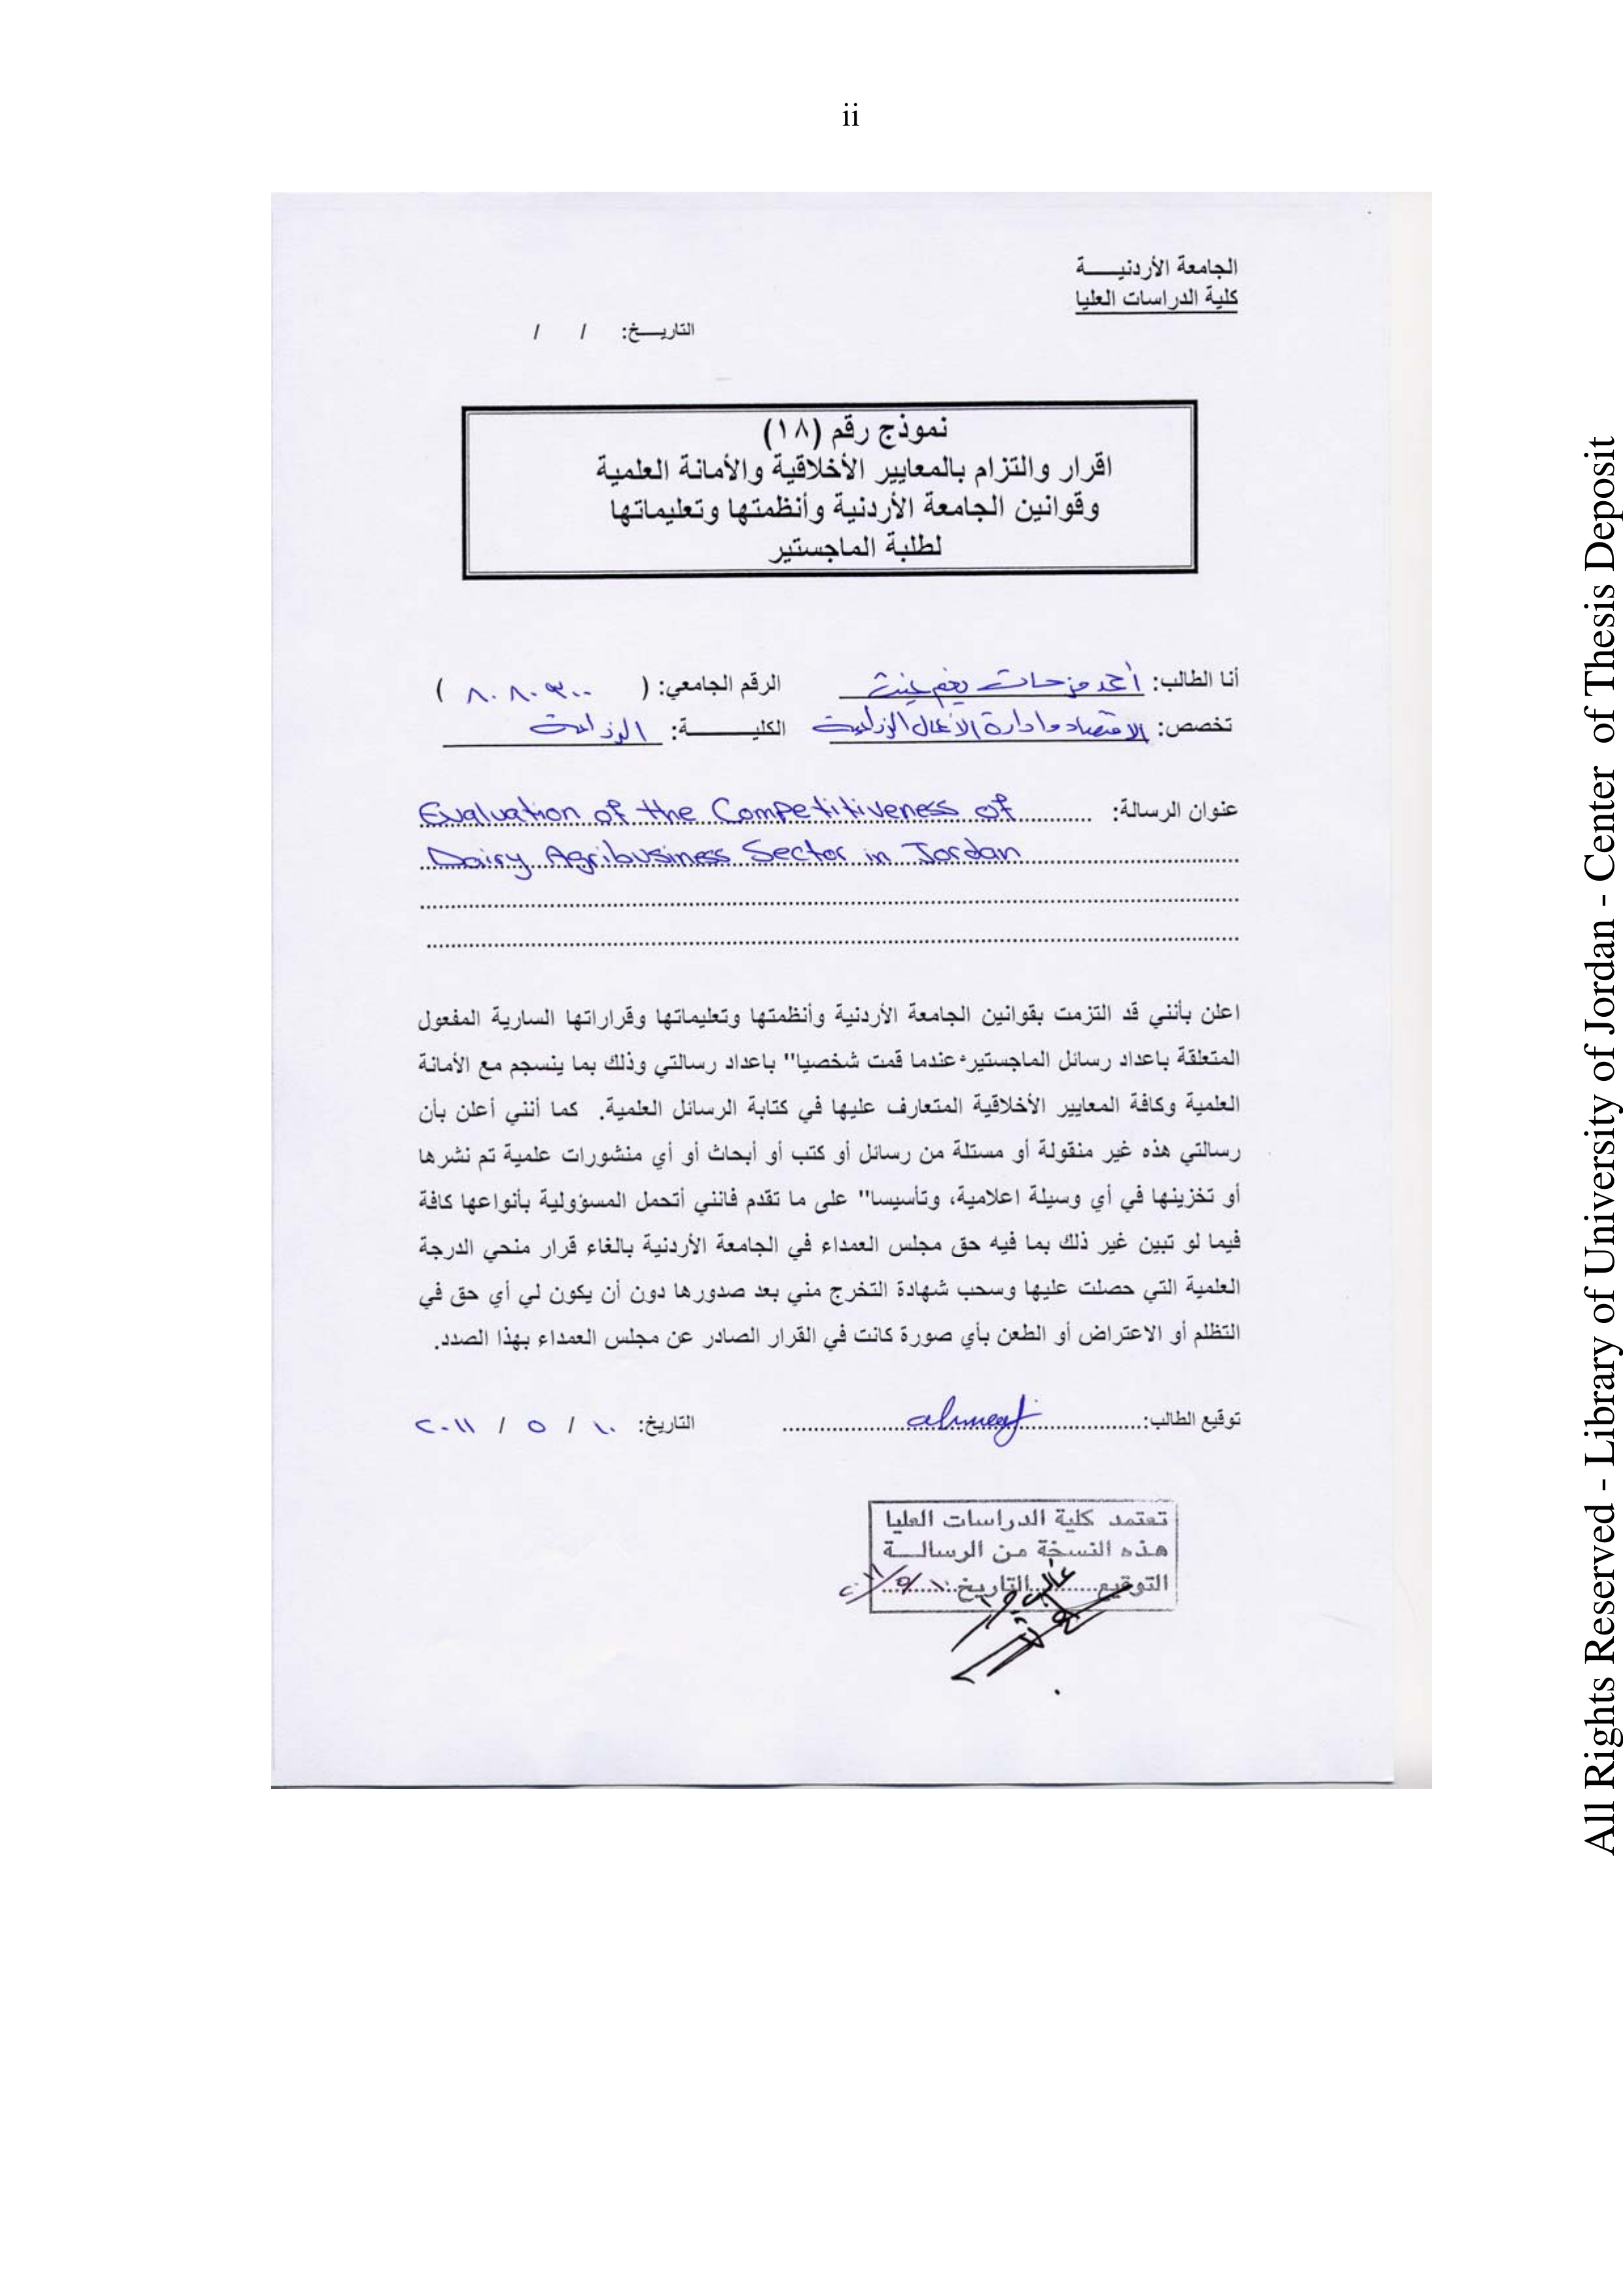 ii
الجامعة الأردنيـــــة
كلية الدراسات العليا
التاريـــخ: / /
نموذج رقم (١٨)
اقرار والتزام بالمعايير الأخلاقية والأمانة العلمية
وقوانين الجامعة الأردنية وأنظمتها وتعليماتها
لطلبة الماجستير
أنا الطالب: أحمد فرحات الرقم الجامعي: ( )
تخصص: الاقتصاد وادارة الأعمال الزراعية الكليـــــــة: الزراعة
عنوان الرسالة: Evaluation of the Competitiveness of
Dairy Agribusiness Sector in Jordan
اعلن بأنني قد التزمت بقوانين الجامعة الأردنية وأنظمتها وتعليماتها وقراراتها السارية المفعول
المتعلقة باعداد رسائل الماجستير عندما قمت شخصيا" باعداد رسالتي وذلك بما ينسجم مع الأمانة
العلمية وكافة المعايير الأخلاقية المتعارف عليها في كتابة الرسائل العلمية. كما أنني أعلن بأن
رسالتي هذه غير منقولة أو مستلة من رسائل أو كتب أو أبحاث أو أي منشورات علمية تم نشرها
أو تخزينها في أي وسيلة اعلامية، وتأسيسا" على ما تقدم فانني أتحمل المسؤولية بأنواعها كافة
فيما لو تبين غير ذلك بما فيه حق مجلس العمداء في الجامعة الأردنية بالغاء قرار منحي الدرجة
العلمية التي حصلت عليها وسحب شهادة التخرج مني بعد صدورها دون أن يكون لي أي حق في
التظلم أو الاعتراض أو الطعن بأي صورة كانت في القرار الصادر عن مجلس العمداء بهذا الصدد.
توقيع الطالب: ahmed التاريخ: ١٠ / ٥ / ٢٠١١
تعتمد كلية الدراسات العليا
هذه النسخة من الرسالـــة
التوقيع......التاريخ......
All Rights Reserved - Library of University of Jordan - Center of Thesis Deposit